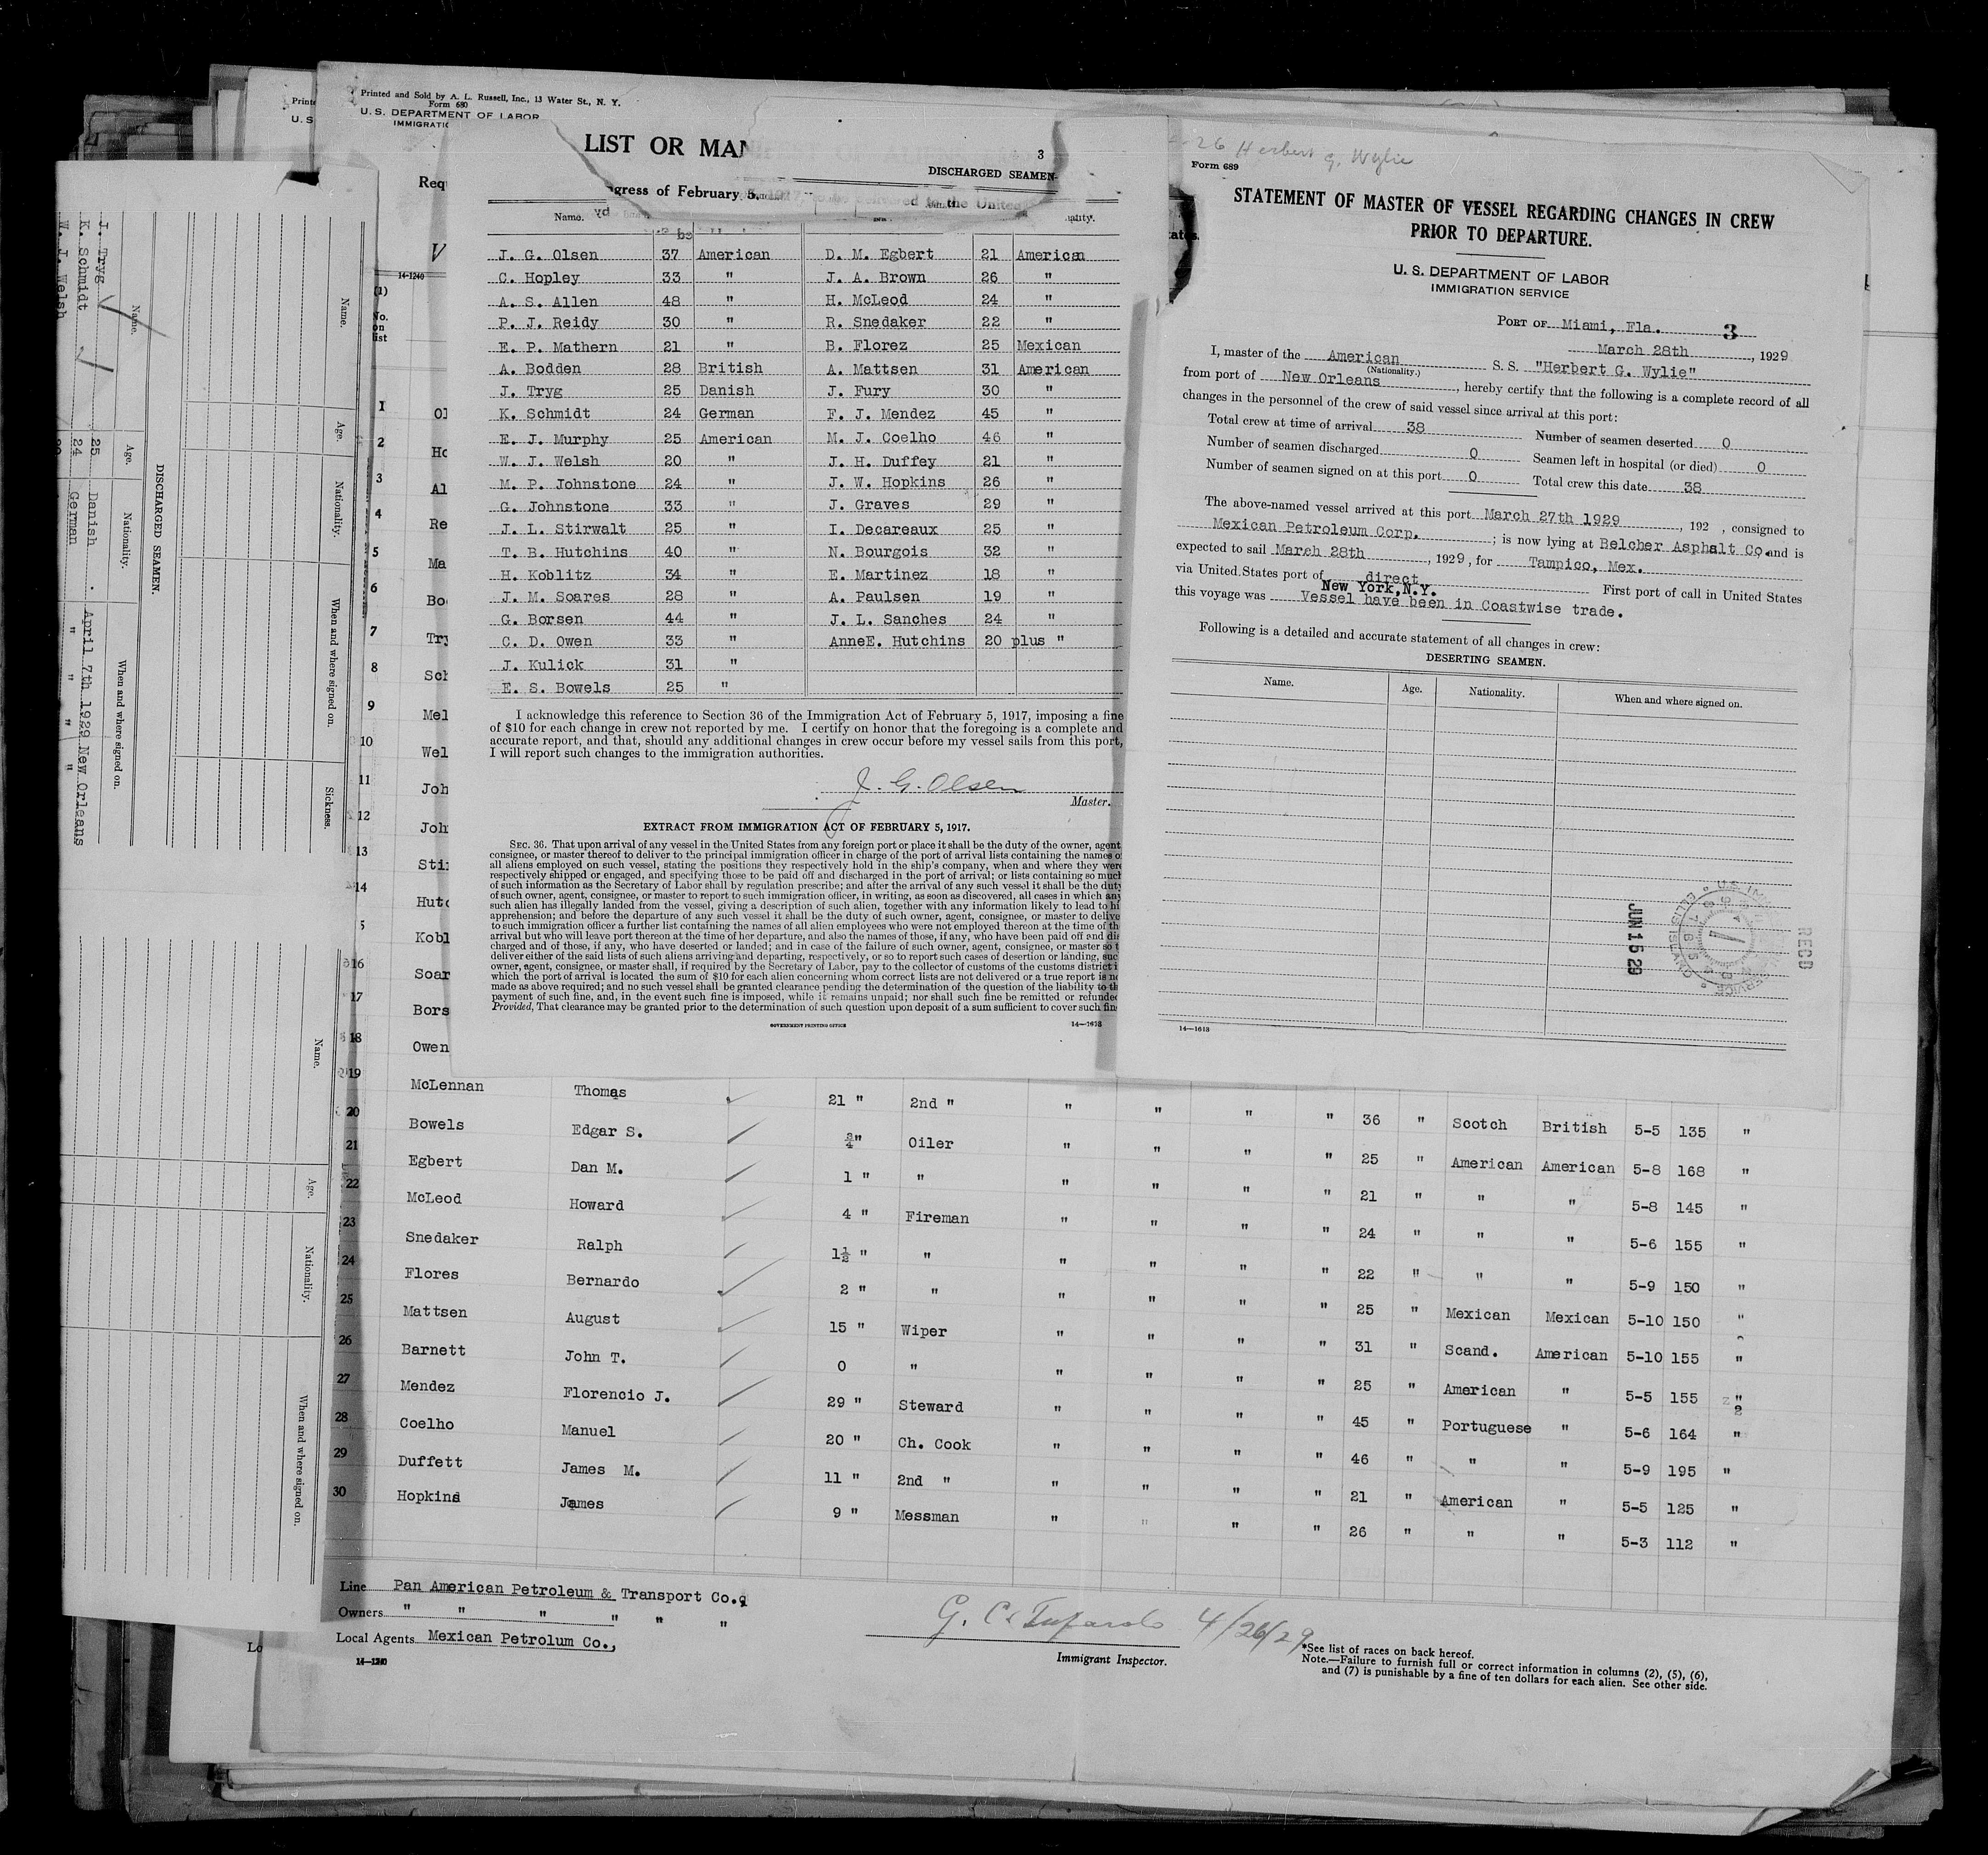 Printed and Sold by A. L. Russell, Inc., 13 Water St., N. Y.
Form 680
U. S. DEPARTMENT OF LABOR
LIST OR MAN
3
DISCHARGED SEAMEN
gress of February 5, 1917,
to be delivered to the United
Name.
J. G. Olsen 37 American D. M. Egbert 21 American
C. Hopley 33 " J. A. Brown 26 "
A. S. Allen 48 " H. McLeod 24 "
P. J. Reidy 30 " R. Snedaker 22 "
E. P. Mathern 21 " B. Florez 25 Mexican
A. Bodden 28 British A. Mattsen 31 American
J. Tryg 25 Danish J. Fury 30 "
K. Schmidt 24 German F. J. Mendez 45 "
E. J. Murphy 25 American M. J. Coelho 46 "
W. J. Welsh 20 " J. H. Duffey 21 "
M. P. Johnstone 24 " J. W. Hopkins 26 "
G. Johnstone 33 " J. Graves 29 "
J. L. Stirwalt 25 " I. Decareaux 25 "
T. B. Hutchins 40 " N. Bourgois 32 "
H. Koblitz 34 " E. Martinez 18 "
J. M. Soares 28 " A. Paulsen 19 "
G. Borsen 44 " J. L. Sanches 24 "
C. D. Owen 33 " AnneE. Hutchins 20 plus "
J. Kulick 31 "
E. S. Bowels 25 "
I acknowledge this reference to Section 36 of the Immigration Act of February 5, 1917, imposing a fine
of $10 for each change in crew not reported by me. I certify on honor that the foregoing is a complete and
accurate report, and that, should any additional changes in crew occur before my vessel sails from this port,
I will report such changes to the immigration authorities.
J. G. Olsen
Master.
EXTRACT FROM IMMIGRATION ACT OF FEBRUARY 5, 1917.
SEC. 36. That upon arrival of any vessel in the United States from any foreign port or place it shall be the duty of the owner, agent
consignee, or master thereof to deliver to the principal immigration officer in charge of the port of arrival lists containing the names o
all aliens employed on such vessel, stating the positions they respectively hold in the ship's company, when and where they were
respectively shipped or engaged, and specifying those to be paid off and discharged in the port of arrival; or lists containing so much
of such information as the Secretary of Labor shall by regulation prescribe; and after the arrival of any such vessel it shall be the duty
of such owner, agent, consignee, or master to report to such immigration officer, in writing, as soon as discovered, all cases in which any
such alien has illegally landed from the vessel, giving a description of such alien, together with any information likely to lead to hi
apprehension; and before the departure of any such vessel it shall be the duty of such owner, agent, consignee, or master to delive
to such immigration officer a further list containing the names of all alien employees who were not employed thereon at the time of th
arrival but who will leave port thereon at the time of her departure, and also the names of those, if any, who have been paid off and dis
charged and of those, if any, who have deserted or landed; and in case of the failure of such owner, agent, consignee, or master so t
deliver either of the said lists of such aliens arriving and departing, respectively, or so to report such cases of desertion or landing, suc
owner, agent, consignee, or master shall, if required by the Secretary of Labor, pay to the collector of customs of the customs district i
which the port of arrival is located the sum of $10 for each alien concerning whom correct lists are not delivered or a true report is no
made as above required; and no such vessel shall be granted clearance pending the determination of the question of the liability to th
payment of such fine, and, in the event such fine is imposed, while it remains unpaid; nor shall such fine be remitted or refunded
Provided, That clearance may be granted prior to the determination of such question upon deposit of a sum sufficient to cover such fine
GOVERNMENT PRINTING OFFICE
14—1613
26 Herbert G. Wylie
Form 689
STATEMENT OF MASTER OF VESSEL REGARDING CHANGES IN CREW
PRIOR TO DEPARTURE.
U. S. DEPARTMENT OF LABOR
IMMIGRATION SERVICE
PORT OF Miami, Fla. 3
March 28th, 1929
I, master of the American S. S. "Herbert G. Wylie"
(Nationality.)
from port of New Orleans, hereby certify that the following is a complete record of all
changes in the personnel of the crew of said vessel since arrival at this port:
Total crew at time of arrival 38 Number of seamen deserted 0
Number of seamen discharged 0 Seamen left in hospital (or died) 0
Number of seamen signed on at this port 0 Total crew this date 38
The above-named vessel arrived at this port March 27th 1929, 192 , consigned to
Mexican Petroleum Corp. ; is now lying at Belcher Asphalt Co. and is
expected to sail March 28th, 1929, for Tampico, Mex.
via United States port of direct First port of call in United States
New York, N.Y.
this voyage was Vessel have been in Coastwise trade.
Following is a detailed and accurate statement of all changes in crew:
DESERTING SEAMEN.
Name. Age. Nationality. When and where signed on.
RECD
JUN 15 29
14—1613
Name. Age. Nationality. When and where signed on. Sickness.
DISCHARGED SEAMEN.
Name. Age. Nationality. When and where signed on.
J. Tryg 25 Danish April 7th 1929 New Orleans
K. Schmidt 24 German " " "
W. J. Welsh
Name. Age. Nationality. When and where signed on.
14-1240
(1)
No. on list
1 Ol
2 Ho
3 Al
4 Re
5 Ma
6 Bo
7 Try
8 Sch
9 Mel
10 Wel
11 Joh
12 Joh
13 Sti
14 Hutc
5 Kobl
16 Soar
17 Bors
18 Owen
19 McLennan Thomas 21 " 2nd " " " " " 36 " Scotch British 5-5 135 "
20 Bowels Edgar S. 3/4" Oiler " " " " 25 " American American 5-8 168 "
21 Egbert Dan M. 1 " " " " " " 21 " " " 5-8 145 "
22 McLeod Howard 4 " Fireman " " " " 24 " " " 5-6 155 "
23 Snedaker Ralph 1½ " " " " " " 22 " " " 5-9 150 "
24 Flores Bernardo 2 " " " " " " 25 " Mexican Mexican 5-10 150 "
25 Mattsen August 15 " Wiper " " " " 31 " Scand. American 5-10 155 "
26 Barnett John T. 0 " " " " " 25 " American " 5-5 155 "
27 Mendez Florencio J. 29 " Steward " " " " 45 " Portuguese " 5-6 164 "
28 Coelho Manuel 20 " Ch. Cook " " " " 46 " " " 5-9 195 "
29 Duffett James M. 11 " 2nd " " " " " 21 " American " 5-5 125 "
30 Hopkins James 9 " Messman " " " " 26 " " " 5-3 112 "
Line Pan American Petroleum & Transport Co.,
Owners " " " " " "
Local Agents Mexican Petrolum Co.,
14—1240
4/26/29
Immigrant Inspector.
*See list of races on back hereof.
Note.—Failure to furnish full or correct information in columns (2), (5), (6),
and (7) is punishable by a fine of ten dollars for each alien. See other side.